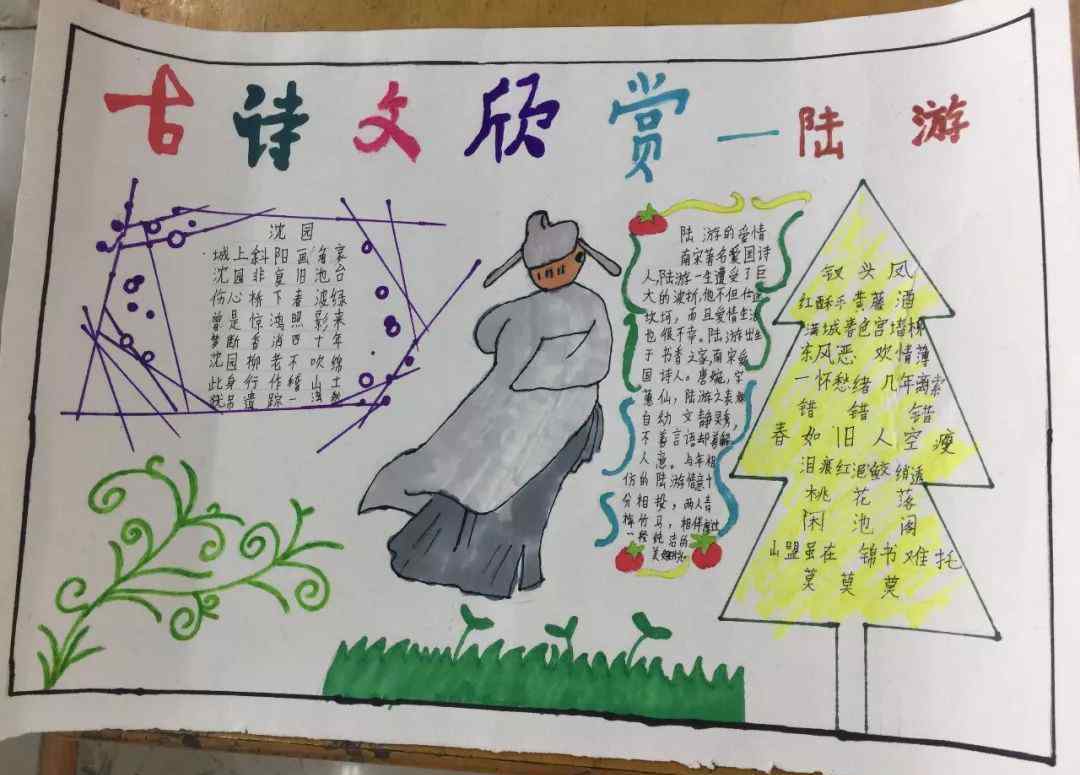 古诗文欣赏—陆游
沈园
城上斜阳画角哀
沈园非复旧池台
伤心桥下春波绿
曾是惊鸿照影来
梦断香消四十年
沈园柳老不吹绵
此身行作稽山土
犹吊遗踪一泫然
陆游的爱情
南宋著名爱国诗
人,陆游一生遭受了巨
大的波折,他不但仕途
坎坷,而且爱情生活
也很不幸。陆游出生
于书香之家,南宋爱
国诗人。唐婉,字
蕙仙,陆游之表妹
自幼文静灵秀,
不善言语却善解
人意。与年相
仿的陆游情意十
分相投,两人青
梅竹马,相伴度过
一段纯洁的
美好时光
钗头凤
红酥手黄藤酒
满城春色宫墙柳
东风恶 欢情薄
一怀愁绪几年离索
错 错 错
春如旧人空瘦
泪痕红浥鲛绡透
桃花落
闲池阁
山盟虽在 锦书难托
莫 莫 莫